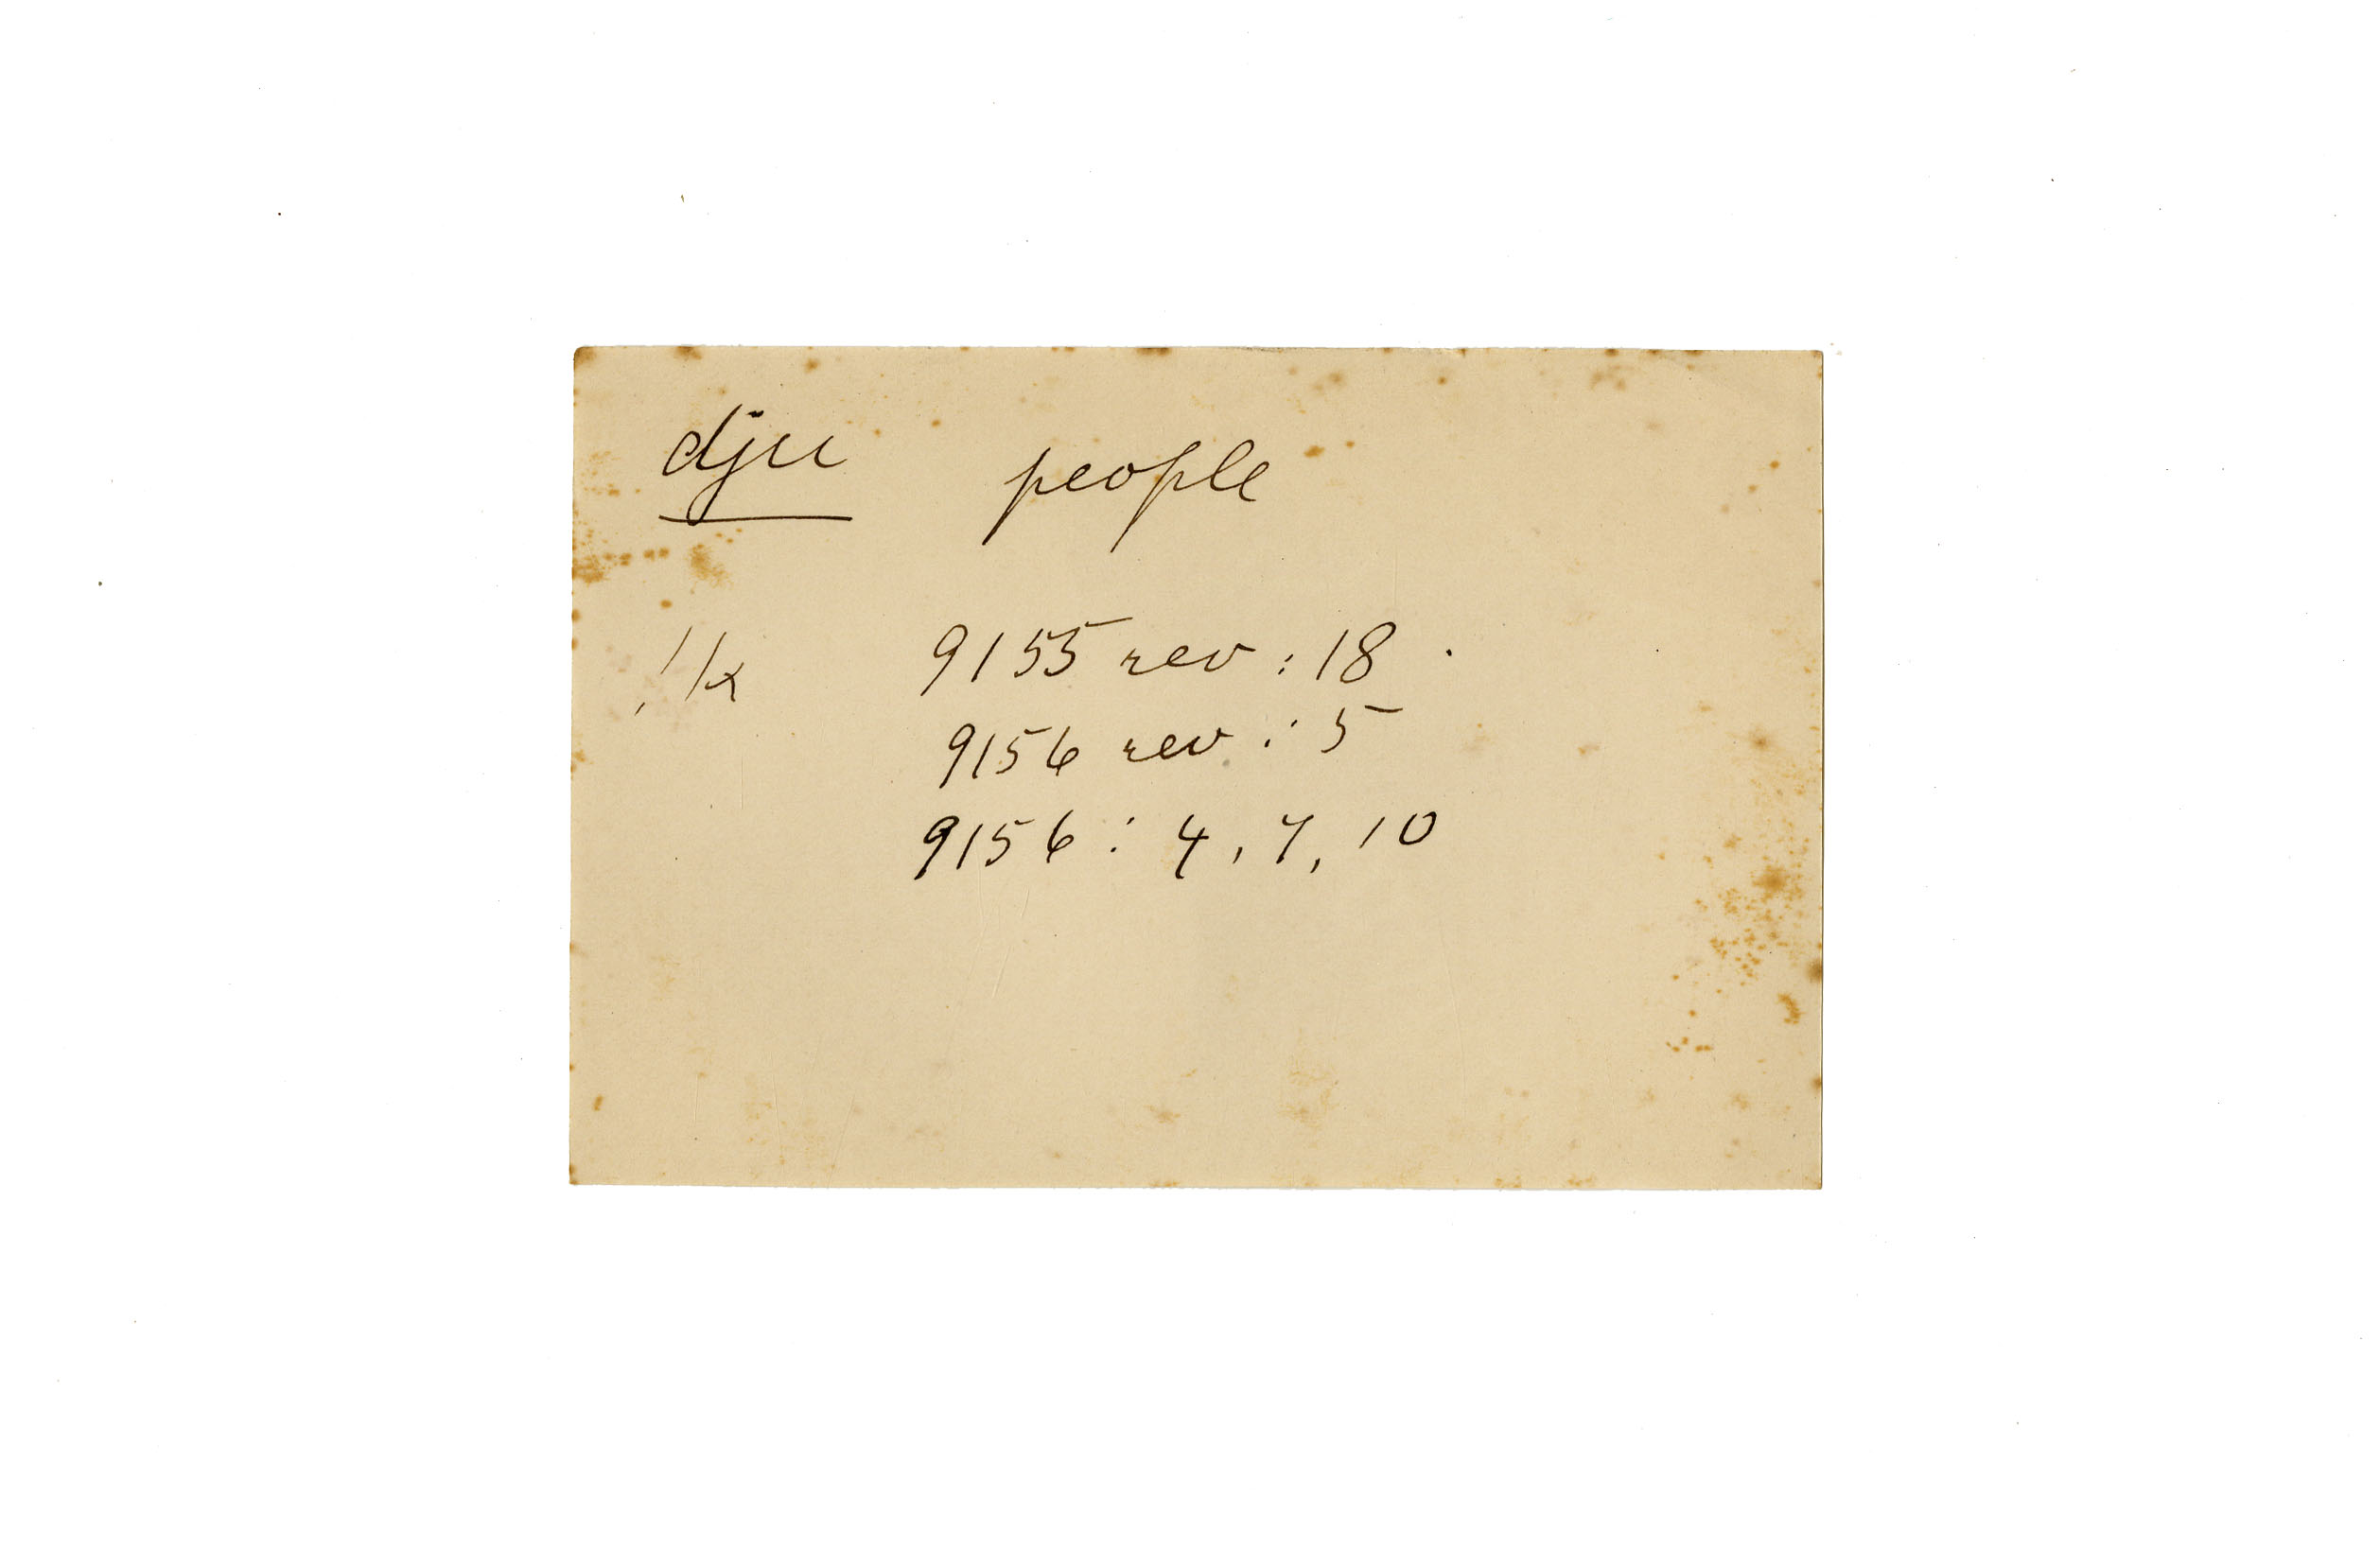 dju people
!k 9155 rev : 18.
9156 rev : 5
9156 : 4, 7, 10